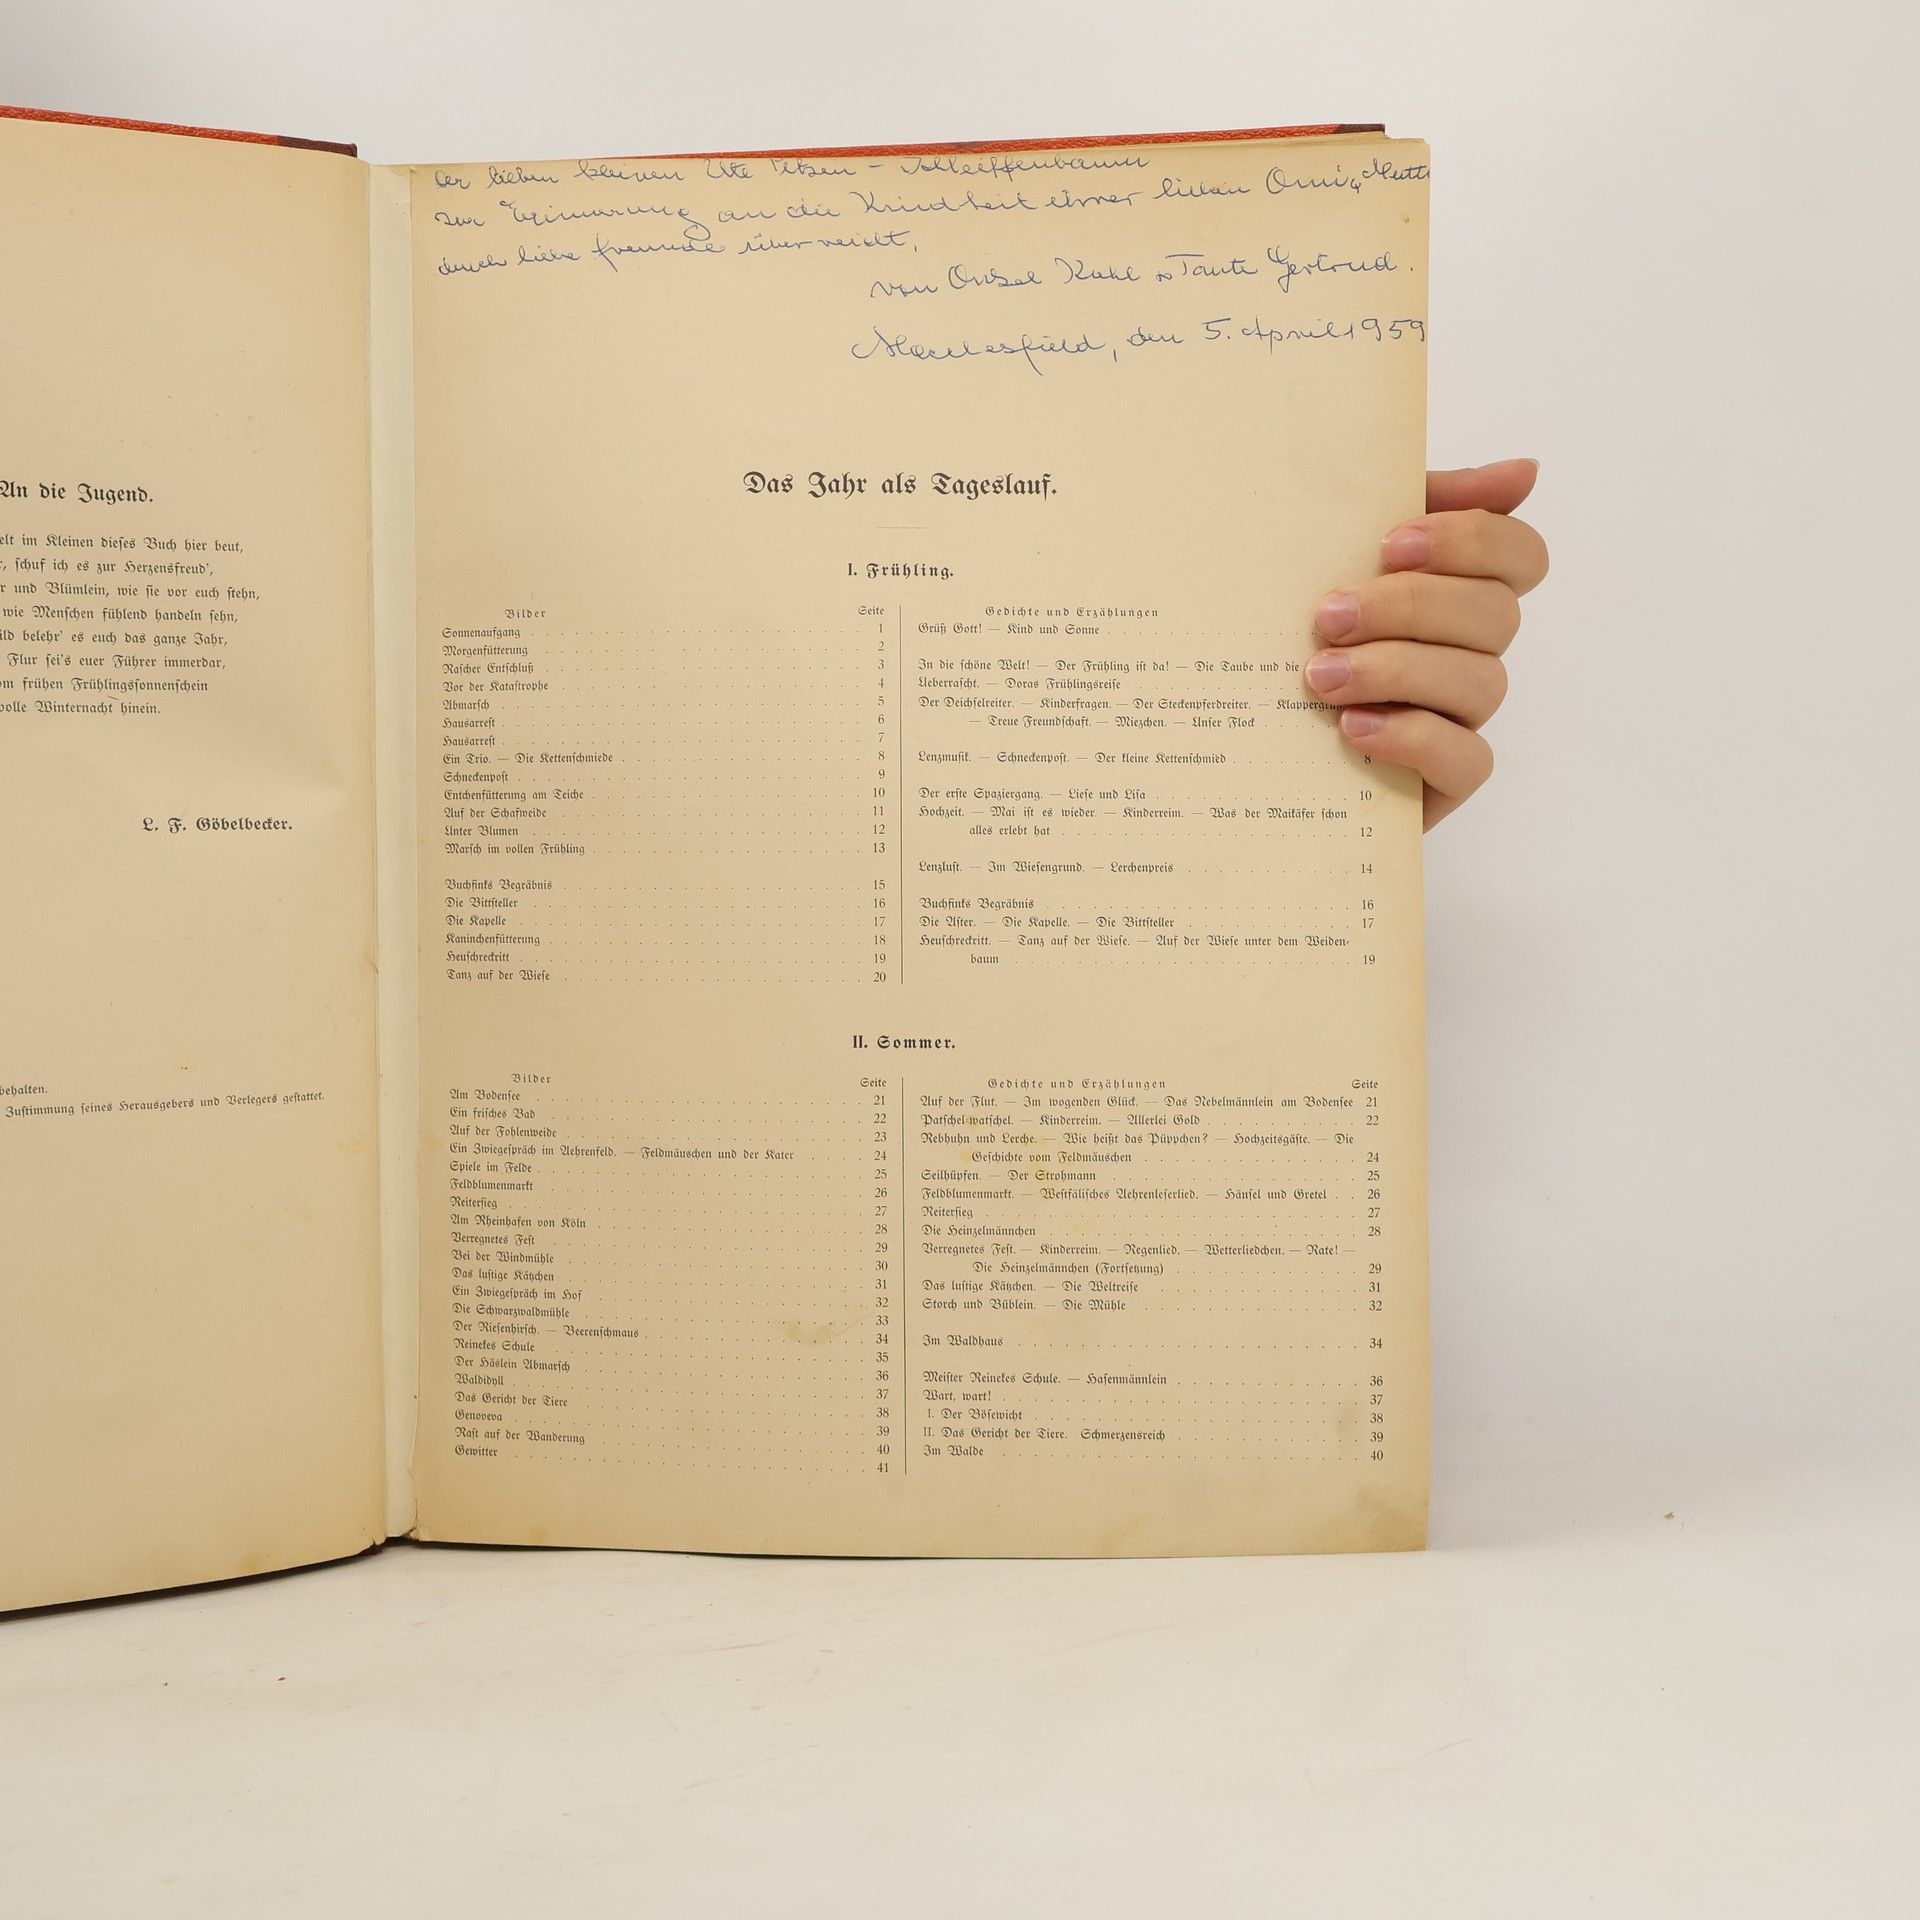 An die Jugend.
elt im Kleinen dieſes Buch hier beut,
, ſchuf ich es zur Herzensfreud',
r und Blümlein, wie ſie vor euch ſtehn,
wie Menſchen fühlend handeln ſehn,
ild belehr' es euch das ganze Jahr,
Flur ſei's euer Führer immerdar,
om frühen Frühlingsſonnenſchein
volle Winternacht hinein.
L. F. Göbelbecker.
behalten.
Zuſtimmung ſeines Herausgebers und Verlegers geſtattet.
der lieben kleinen Ute - Schleiffenbaum
zur Erinnerung an die Kindheit ihrer lieben Omi & Mutti
durch liebe Freunde überreicht,
von Onkel Kuhl & Tante Gertrud.
Macclesfield, den 5. April 1959
Das Jahr als Tageslauf.
I. Frühling.
Bilder Seite
Sonnenaufgang 1
Morgenfütterung 2
Raſcher Entſchluß 3
Vor der Kataſtrophe 4
Abmarſch 5
Hausarreſt 6
Hausarreſt 7
Ein Trio. — Die Kettenſchmiede 8
Schneckenpoſt 9
Entchenfütterung am Teiche 10
Auf der Schafweide 11
Unter Blumen 12
Marſch im vollen Frühling 13
Buchfinks Begräbnis 15
Die Bittſteller 16
Die Kapelle 17
Kaninchenfütterung 18
Heuſchreckritt 19
Tanz auf der Wieſe 20
Gedichte und Erzählungen
Grüß Gott! — Kind und Sonne
In die ſchöne Welt! — Der Frühling iſt da! — Die Taube und die
Ueberraſcht. — Doras Frühlingsreiſe
Der Deichſelreiter. — Kinderfragen. — Der Steckenpferdreiter. —
— Treue Freundſchaft. — Miezchen. — Unſer Flock
Lenzmuſik. — Schneckenpoſt. — Der kleine Kettenſchmied 8
Der erſte Spaziergang. — Lieſe und Liſa 10
Hochzeit. — Mai iſt es wieder. — Kinderreim. — Was der Maikäfer ſchon
alles erlebt hat 12
Lenzluſt. — Im Wieſengrund. — Lerchenpreis 14
Buchfinks Begräbnis 16
Die Aſter. — Die Kapelle. — Die Bittſteller 17
Heuſchreckritt. — Tanz auf der Wieſe. — Auf der Wieſe unter dem Weiden-
baum 19
II. Sommer.
Bilder Seite
Am Bodenſee 21
Ein friſches Bad 22
Auf der Fohlenweide 23
Ein Zwiegeſpräch im Aehrenfeld. — Feldmäuschen und der Kater 24
Spiele im Felde 25
Feldblumenmarkt 26
Reiterſieg 27
Am Rheinhafen von Köln 28
Verregnetes Feſt 29
Bei der Windmühle 30
Das luſtige Kätzchen 31
Ein Zwiegeſpräch im Hof 32
Die Schwarzwaldmühle 33
Der Rieſenhirſch. — Beerenſchmaus 34
Reinekes Schule 35
Der Häslein Abmarſch 36
Waldidyll 37
Das Gericht der Tiere 38
Genoveva 39
Raſt auf der Wanderung 40
Gewitter 41
Gedichte und Erzählungen Seite
Auf der Flut. — Im wogenden Glück. — Das Nebelmännlein am Bodenſee 21
Patſchel watſchel. — Kinderreim. — Allerlei Gold 22
Rebhuhn und Lerche. — Wie heißt das Püppchen? — Hochzeitsgäſte. — Die
Geſchichte vom Feldmäuschen 24
Seilhüpfen. — Der Strohmann 25
Feldblumenmarkt. — Weſtfäliſches Aehrenleſerlied. — Hänſel und Gretel 26
Reiterſieg 27
Die Heinzelmännchen 28
Verregnetes Feſt. — Kinderreim. — Regenlied. — Wetterliedchen. — Rate! —
Die Heinzelmännchen (Fortſetzung) 29
Das luſtige Kätzchen. — Die Weltreiſe 31
Storch und Büblein. — Die Mühle 32
Im Waldhaus 34
Meiſter Reinekes Schule. — Haſenmännlein 36
Wart, wart! 37
I. Der Böſewicht 38
II. Das Gericht der Tiere. Schmerzensreich 39
Im Walde 40